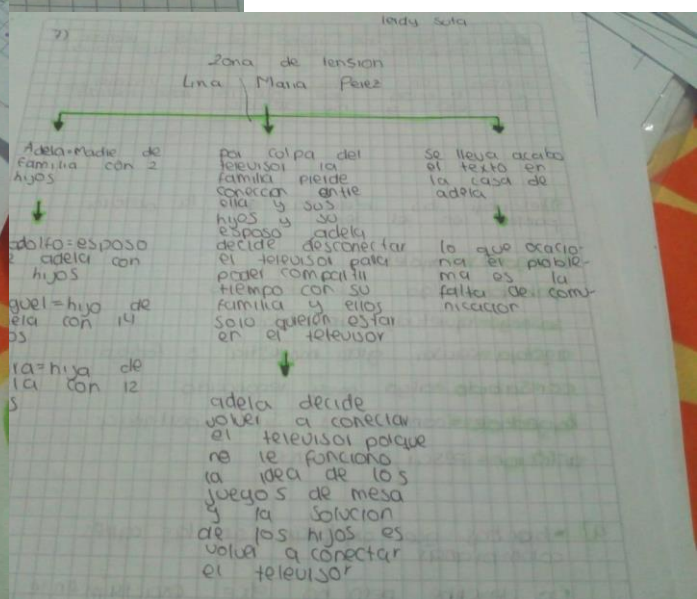 leidy sota
7)
Zona de tension
Lina Maria Perez
Adela=Madre de
familia con 2
hijos
dolfo=esposo
adela con
hijos
guel=hijo de
ela con 14
os
ra=hija de
la con 12
s
por colpa del
televisor la
familia pierde
coneccon entre
ella y sus
hijos y su
esposo adela
decide desconectar
el televisor para
poder compartir
tiempo con su
familia y ellos
solo queron estar
en el televisor
adela decide
volver a conectar
el televisor porque
no le funciono
la idea de los
juegos de mesa
y la solucion
de los hijos es
volver a conectar
el televisor
se lleva acabo
el texto en
la casa de
adela
lo que ocacio-
na el proble-
ma es la
falta de comu-
nicacion